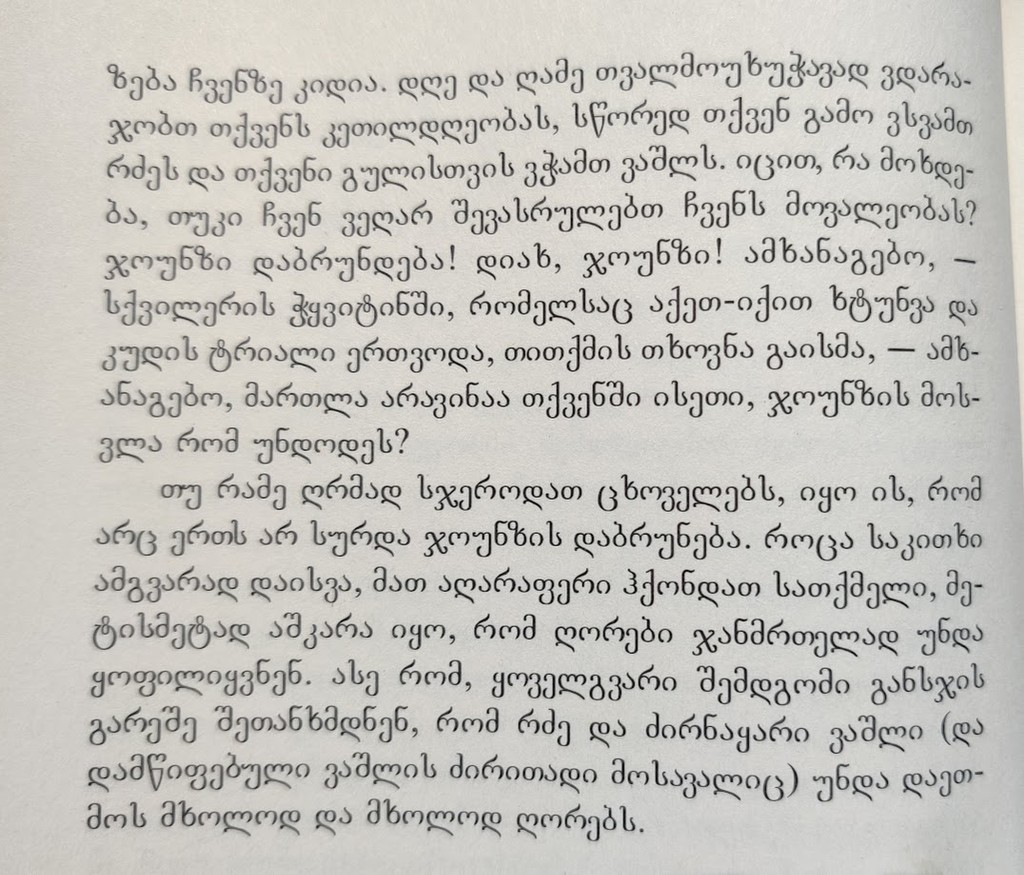 ზება ჩვენზე კიდია. დღე და ღამე თვალმოუხუჭავად ვდარა-
ჯობთ თქვენს კეთილდღეობას, სწორედ თქვენ გამო ვსვამთ
რძეს და თქვენი გულისთვის ვჭამთ ვაშლს. იცით, რა მოხდე-
ბა, თუკი ჩვენ ვეღარ შევასრულებთ ჩვენს მოვალეობას?
ჯოუნზი დაბრუნდება! დიახ, ჯოუნზი! ამხანაგებო, —
სქვილერის ჭყვიტინში, რომელსაც აქეთ-იქით ხტუნვა და
კუდის ტრიალი ერთვოდა, თითქმის თხოვნა გაისმა, — ამხ-
ანაგებო, მართლა არავინაა თქვენში ისეთი, ჯოუნზის მოს-
ვლა რომ უნდოდეს?
თუ რამე ღრმად სჯეროდათ ცხოველებს, იყო ის, რომ
არც ერთს არ სურდა ჯოუნზის დაბრუნება. როცა საკითხი
ამგვარად დაისვა, მათ აღარაფერი ჰქონდათ სათქმელი, მე-
ტისმეტად აშკარა იყო, რომ ღორები ჯანმრთელად უნდა
ყოფილიყვნენ. ასე რომ, ყოველგვარი შემდგომი განსჯის
გარეშე შეთანხმდნენ, რომ რძე და ძირნაყარი ვაშლი (და
დამწიფებული ვაშლის ძირითადი მოსავალიც) უნდა დაეთ-
მოს მხოლოდ და მხოლოდ ღორებს.